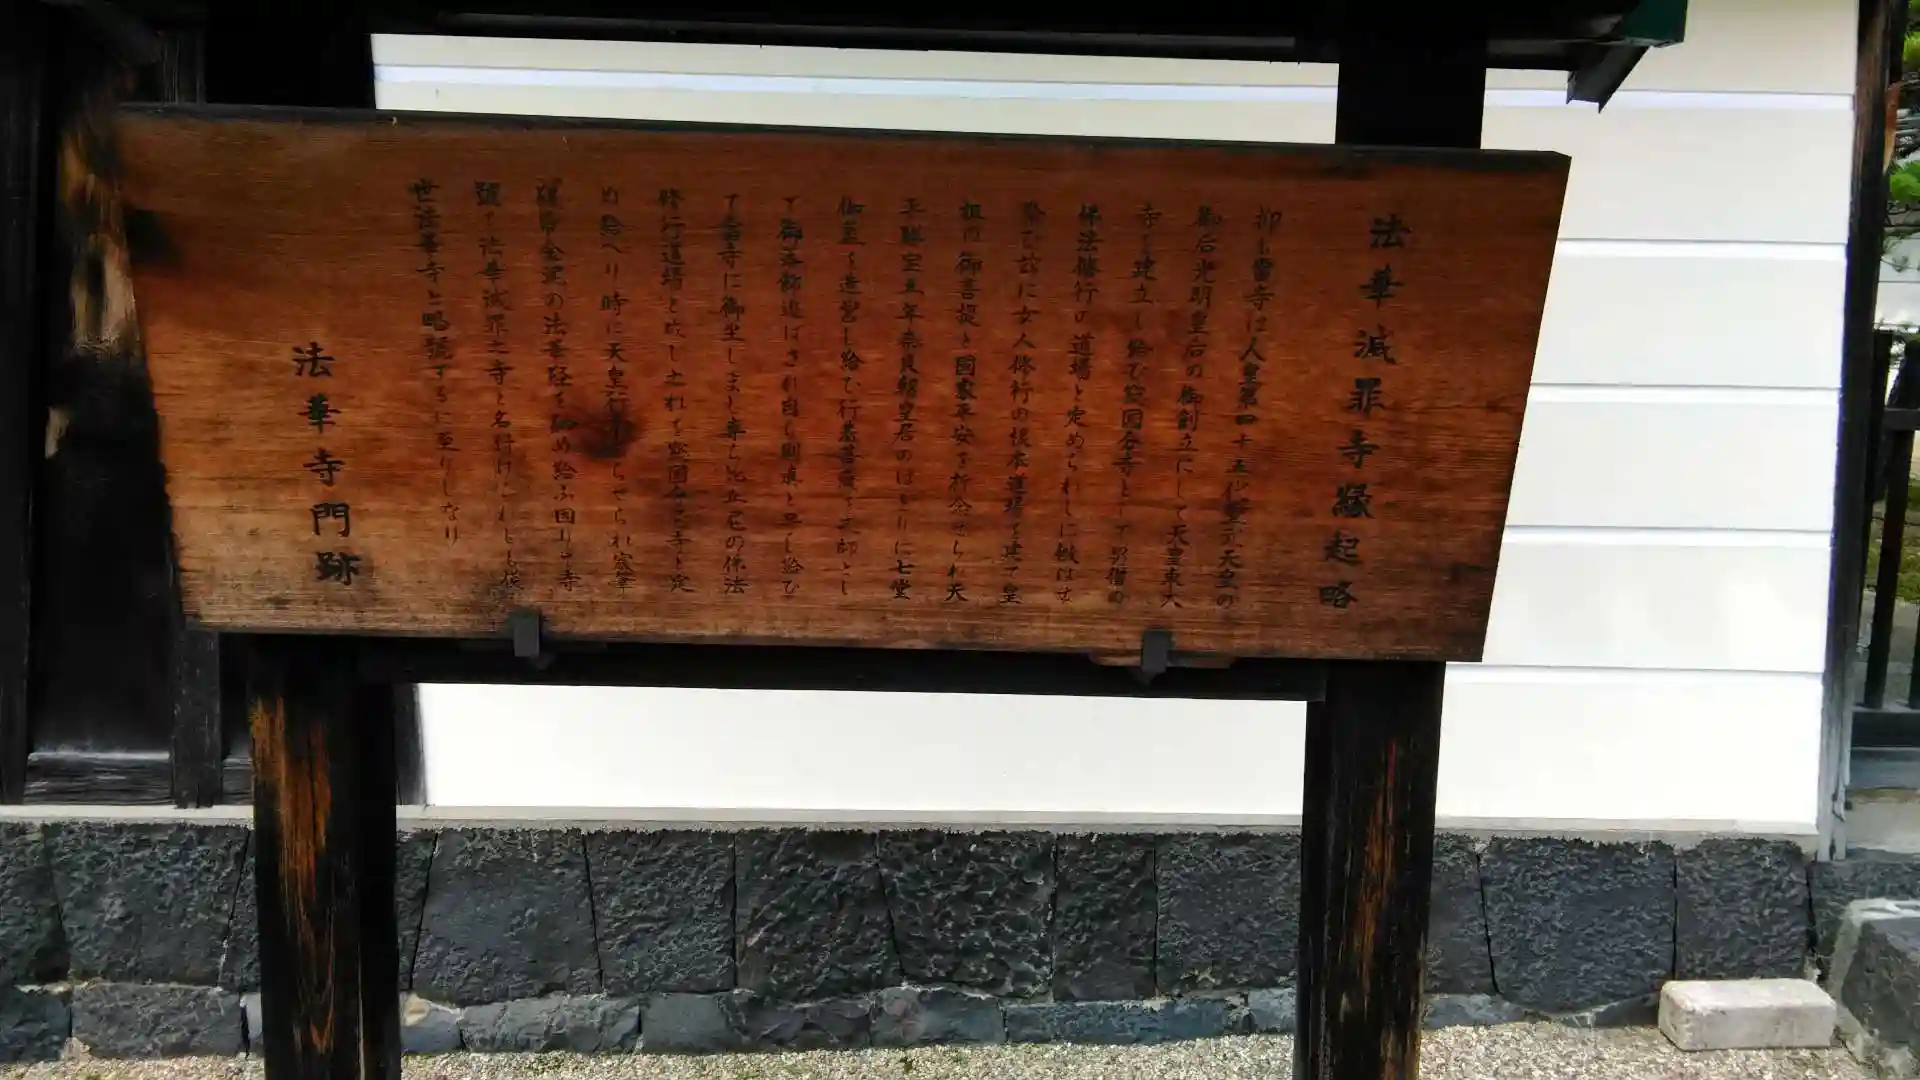 法華滅罪寺縁起略
抑も当寺は人皇第四十五代聖武天皇の
御后光明皇后の御創立にして天皇東大
寺を建立し給ひ諸国各寺として男僧の
佛法修行の道場と定められしに倣はせ
給ひ茲に女人修行の根本道場を建て皇
祖の御菩提と国家平安を祈念せられ天
平勝宝五年奈良朝皇居のほとりに七堂
伽藍を造営し給ひ行基菩薩を
て御落飾遊ばされ自ら則真と号し給ひ
て当寺に御坐しまし専ら比丘尼の佛法
修行道場と成し之れを諸国尼寺と定
め給へり時に天皇行幸あらせられ宸筆
金泥の法華経を納め給ふ因りて寺
号を法華滅罪之寺と名付け
世法華寺と略號するに至りしなり
法華寺門跡